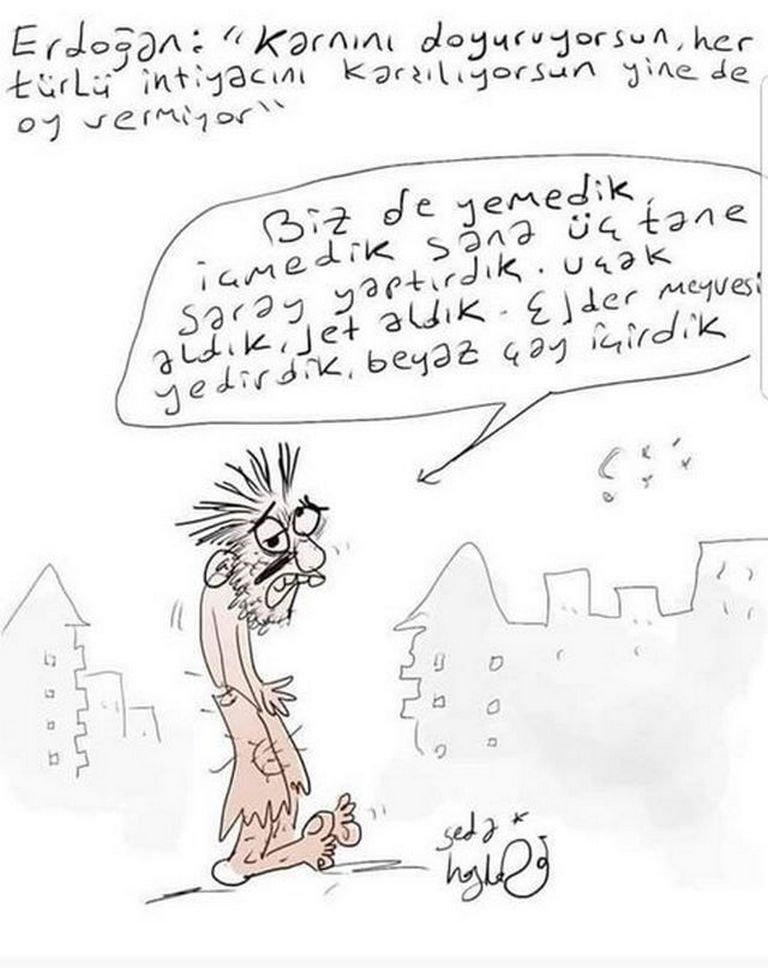 Erdoğan: "Karnını doyuruyorsun, her
türlü intiyacını karşılıyorsun yine de
oy vermiyor"
Biz de yemedik,
içmedik sana üç tane
saray yaptırdık. uçak
aldık, jet aldık. Ejder meyvesi
yedirdik, beyaz çay içirdik
seda